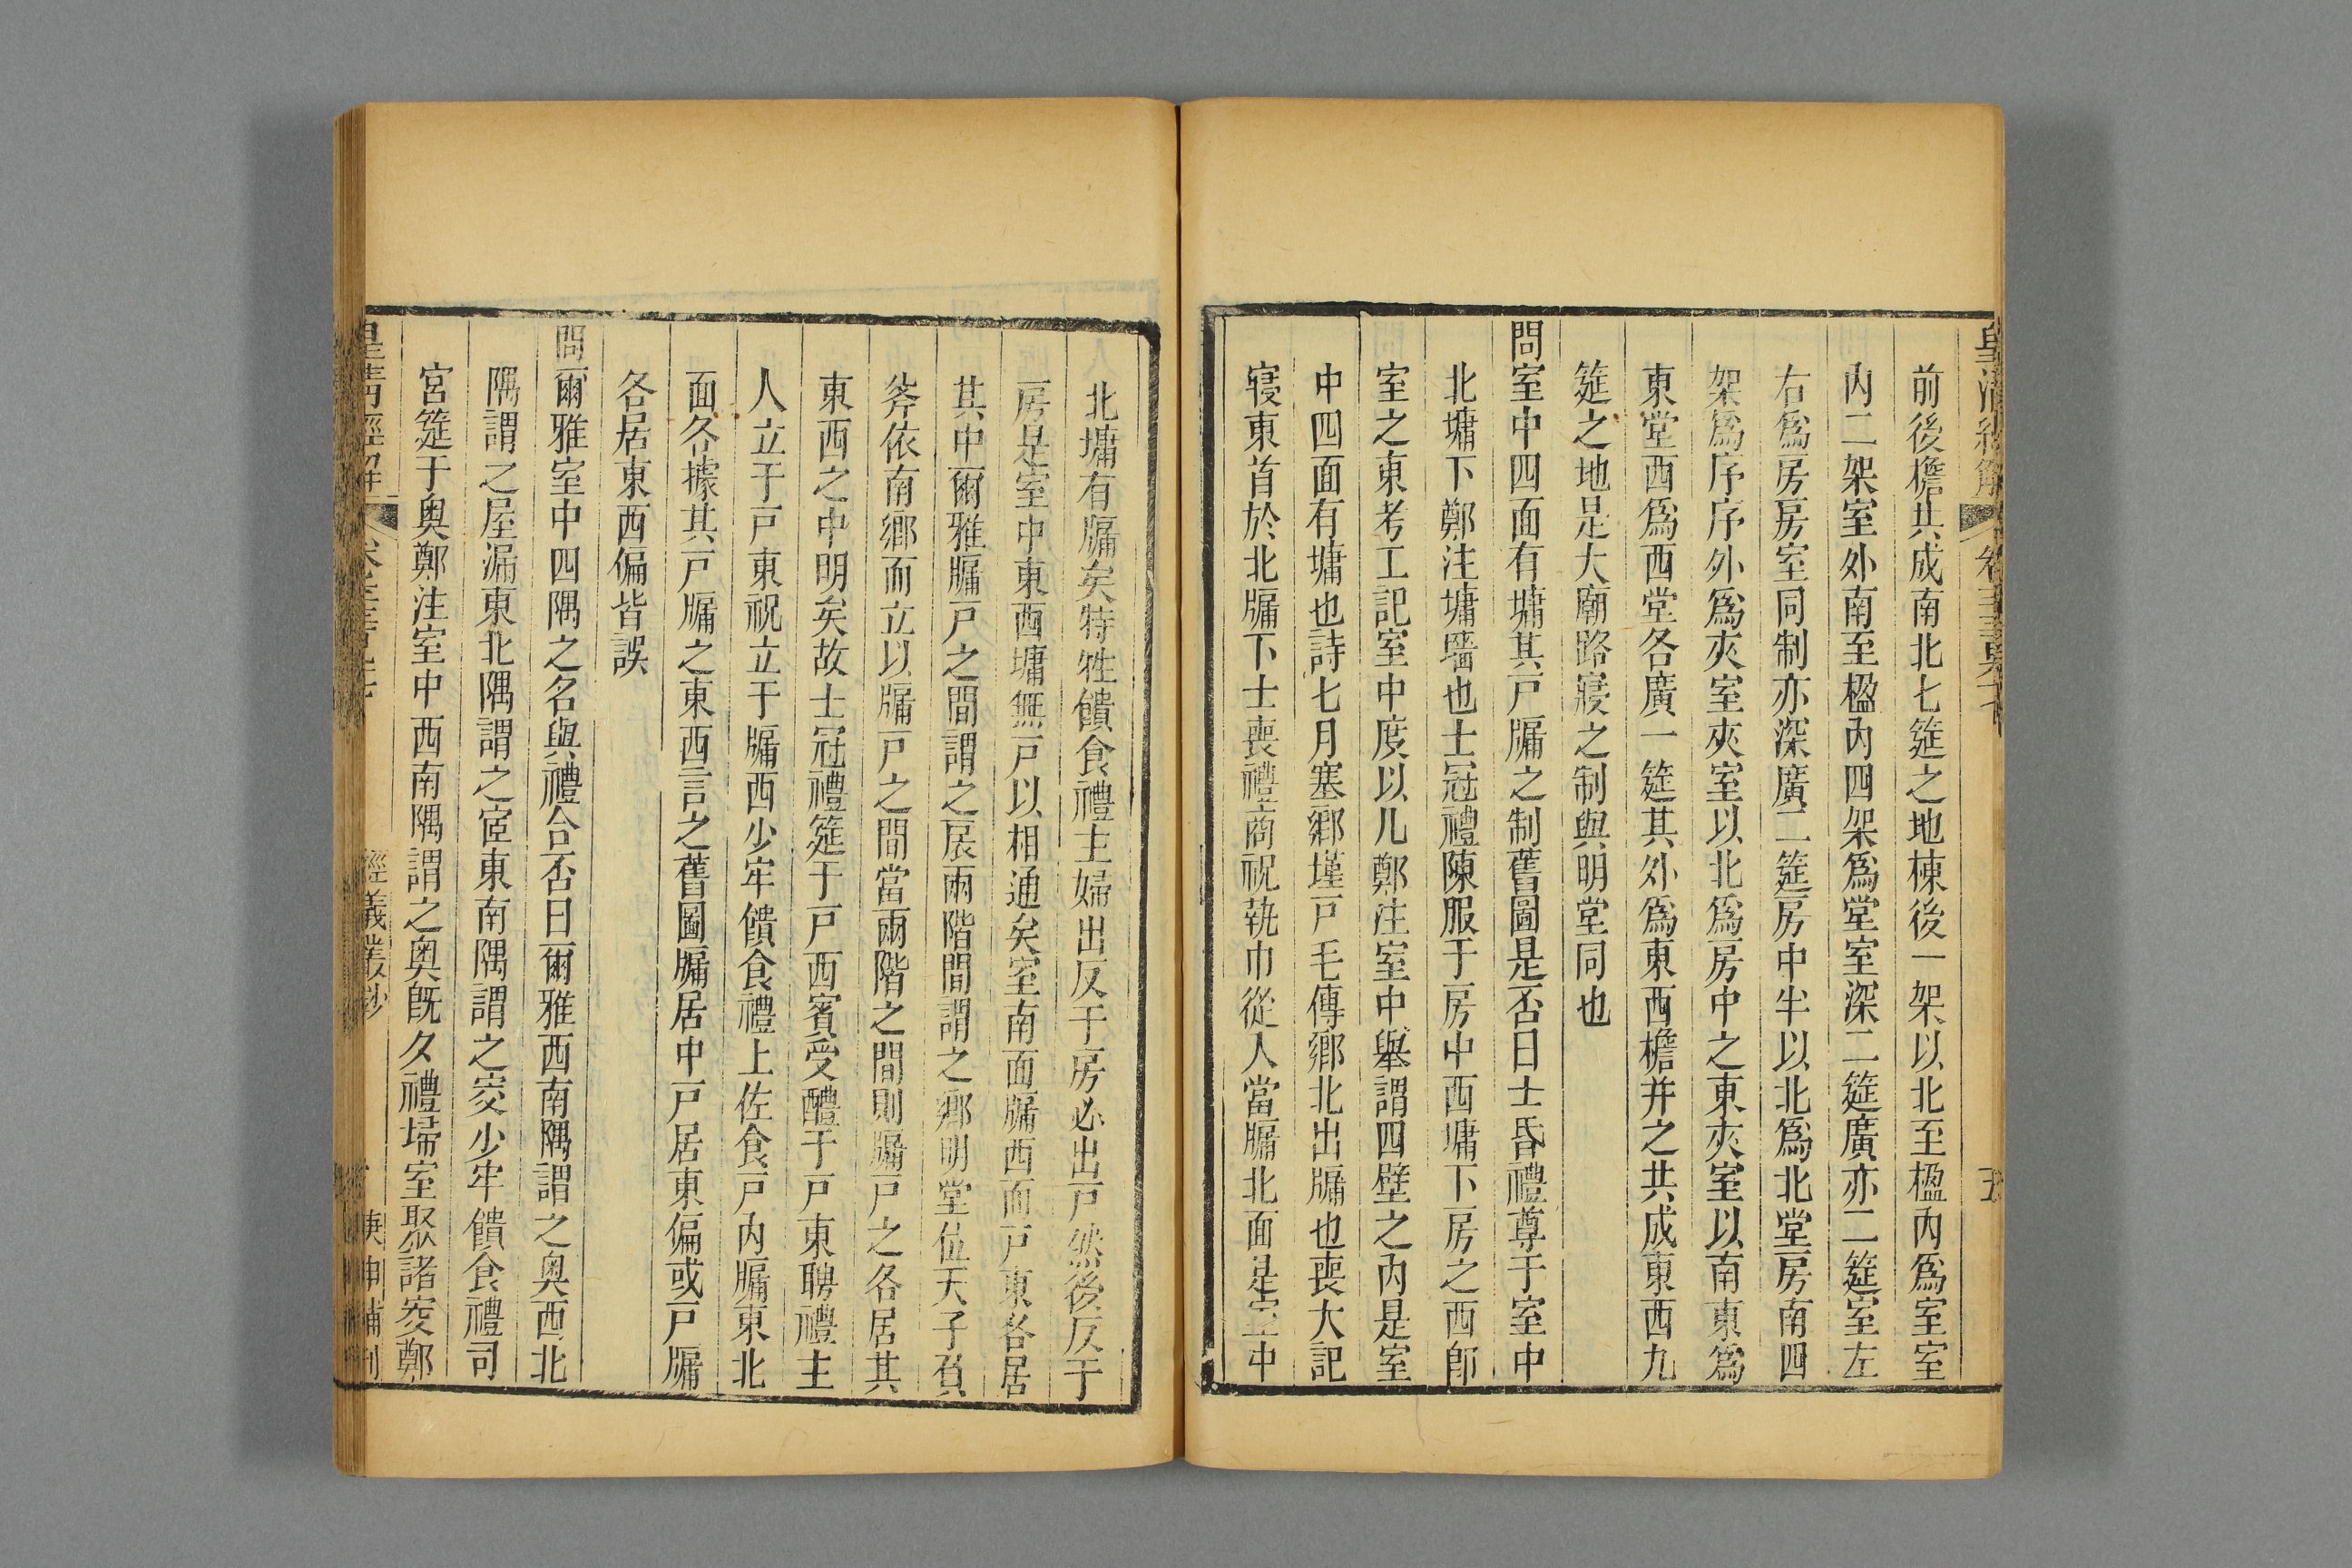 皇清經解
前後檐共成南北七筵之地棟後一架以北至楹內爲室室
內二架室外南至楹內四架爲堂室深二筵廣亦二筵室左
右爲房房室同制亦深廣二筵房中半以北爲北堂房南四
架爲序序外爲夾室夾室以北爲房中之東夾室以南東爲
東堂西爲西堂各廣一筵其外爲東西檐并之共成東西九
筵之地是大廟路寢之制與明堂同也
問室中四面有墉其戸牖之制舊圖是否曰士昏禮尊于室中
北墉下鄭注墉牆也士冠禮陳服于房中西墉下房之西卽
室之東考工記室中度以几鄭注室中舉謂四壁之內是室
中四面有墉也詩七月塞鄉墐戸毛傳鄉北出牖也喪大記
寢東首於北牖下士喪禮商祝執巾從入當牖北面是室中
北墉有牖矣特牲饋食禮主婦出反于房必出戸然後反于
房是室中東西墉無戸以相通矣室南面牖西而戸東各居
其中爾雅牖戸之間謂之扆兩階間謂之鄉明堂位天子負
斧依南鄉而立以牖戸之間當兩階之間則牖戸之各居其
東西之中明矣故士冠禮筵于戸西賓受醴于戸東聘禮主
人立于戸東祝立于牖西少牢饋食禮上佐食戸內牖東北
面各據其戸牖之東西言之舊圖牖居中戸居東偏或戸牖
各居東西偏皆誤
問爾雅室中四隅之名與禮合否曰爾雅西南隅謂之奧西北
隅謂之屋漏東北隅謂之宧東南隅謂之窔少牢饋食禮司
宮筵于奧鄭注室中西南隅謂之奧旣夕禮埽室聚諸窔鄭
皇清經解
經義叢鈔
庚申補刊